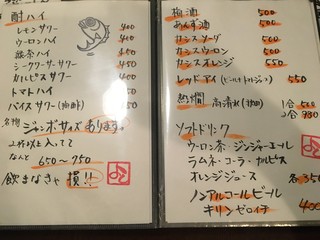 酎ハイ
レモンサワー 400
ウーロンハイ 400
緑茶ハイ 400
シークワーサーサワー 450
カルピスサワー 450
トマトハイ 450
バイスサワー(梅酢) 450
名物 ジャンボサイズあります。
2杯以上入ってて
なんと 650〜750
飲まなきゃ損!!
梅酒 500
あんず酒 500
カシスソーダ 500
カシスウーロン 500
カシスオレンジ 550
レッドアイ(ビール+トマトジュース) 550
熱燗 高清水(秋田) 1合 500
2合 980
ソフトドリンク
ウーロン茶・ジンジャーエール
ラムネ・コーラ・カルピス
オレンジジュース 各350
ノンアルコールビール
キリンゼロイチ 400